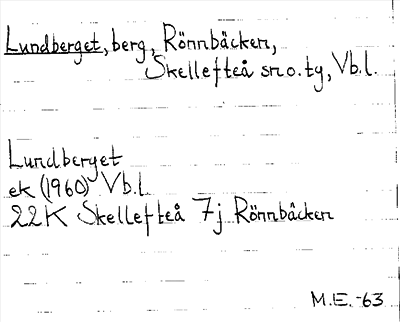 Lundberget, berg, Rönnbäcken,
Skellefteå sn o. ty, Vb.l.
Lundberget
ek (1960) Vb.l
22K Skellefteå 7j Rönnbäcken
M.E.-63